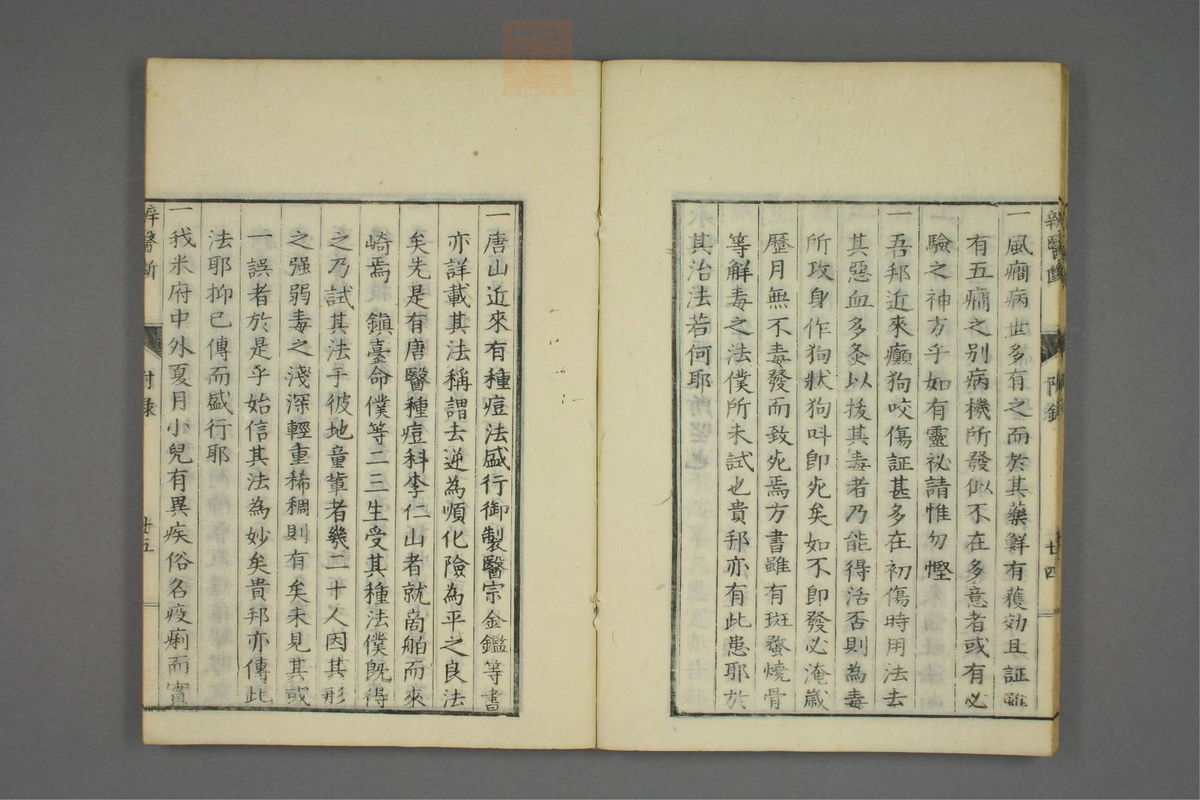 一風癎病世多有之而於其藥鮮有獲効且証雖
有五癎之別病機所發似不在多意者或有必
驗之神方乎如有靈祕請惟勿慳
一吾邦近來癲狗咬傷証甚多在初傷時用法去
其惡血多灸以拔其毒者乃能得活否則為毒
所攻身作狗狀狗叫即死矣如不即發必淹歲
歷月無不毒發而致死焉方書雖有斑蝥燒骨
等解毒之法僕所未試也貴邦亦有此患耶於
其治法若何耶
附錄
廿四
一唐山近來有種痘法盛行御製醫宗金鑑等書
亦詳載其法稱謂去逆為順化險為平之良法
矣先是有唐醫種痘科李仁山者就商舶而來
崎焉 鎮臺命僕等二三生受其種法僕既得
之乃試其法乎彼地童輩者幾二十人因其形
之强弱毒之淺深輕重稀稠則有矣未見其或
一誤者於是乎始信其法為妙矣貴邦亦傳此
法耶抑已傳而盛行耶
一我米府中外夏月小兒有異疾俗名疫痢而實
醫斷
附錄
廿五